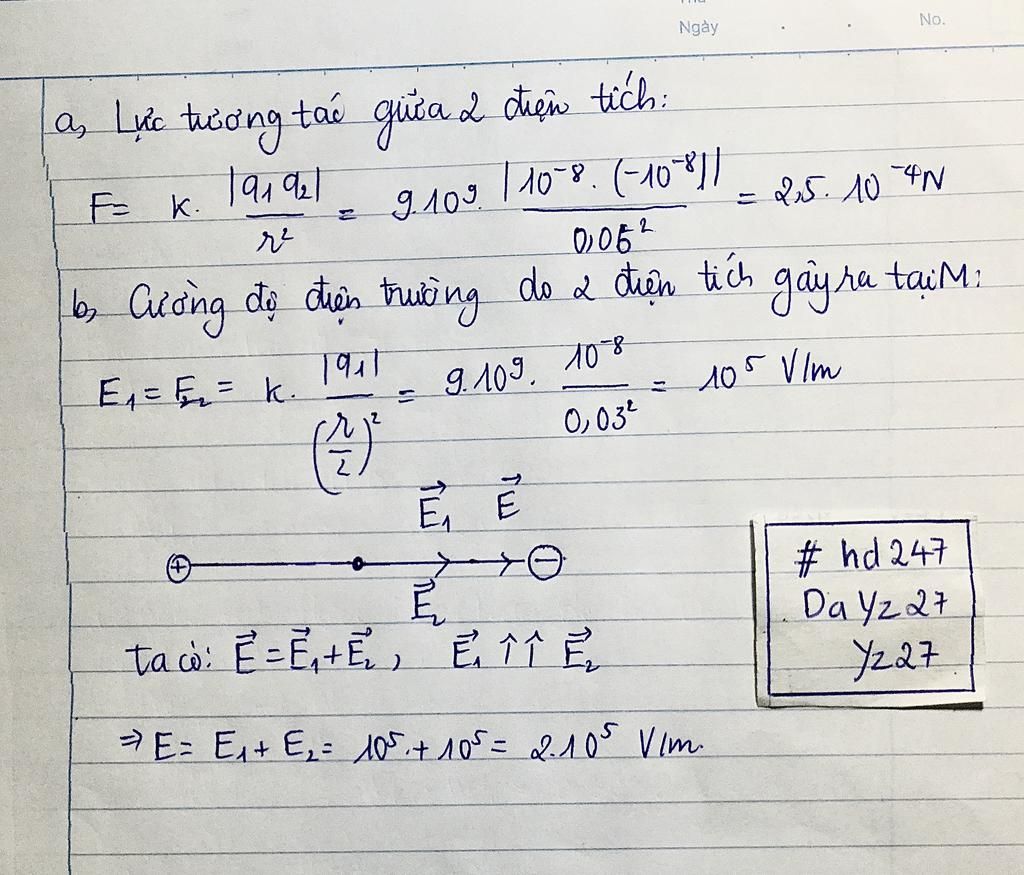 Ngày No.
a, Lực tương tác giữa 2 điện tích:
F= k. |q1 q2| / r² = 9.10⁹. |10⁻⁸. (-10⁻⁸)| / 0,06² = 2,5. 10⁻⁴N
b, Cường độ điện trường do 2 điện tích gây ra tại M:
E₁ = E₂ = k. |q1| / (r/2)² = 9.10⁹. 10⁻⁸ / 0,03² = 10⁵ V/m
E⃗₁ E⃗
+ −
E⃗₂
ta có: E⃗ = E⃗₁ + E⃗₂, E⃗₁ ↑↑ E⃗₂
⇒ E = E₁ + E₂ = 10⁵. + 10⁵ = 2.10⁵ V/m.
# hd247
DaYz27
Yz27